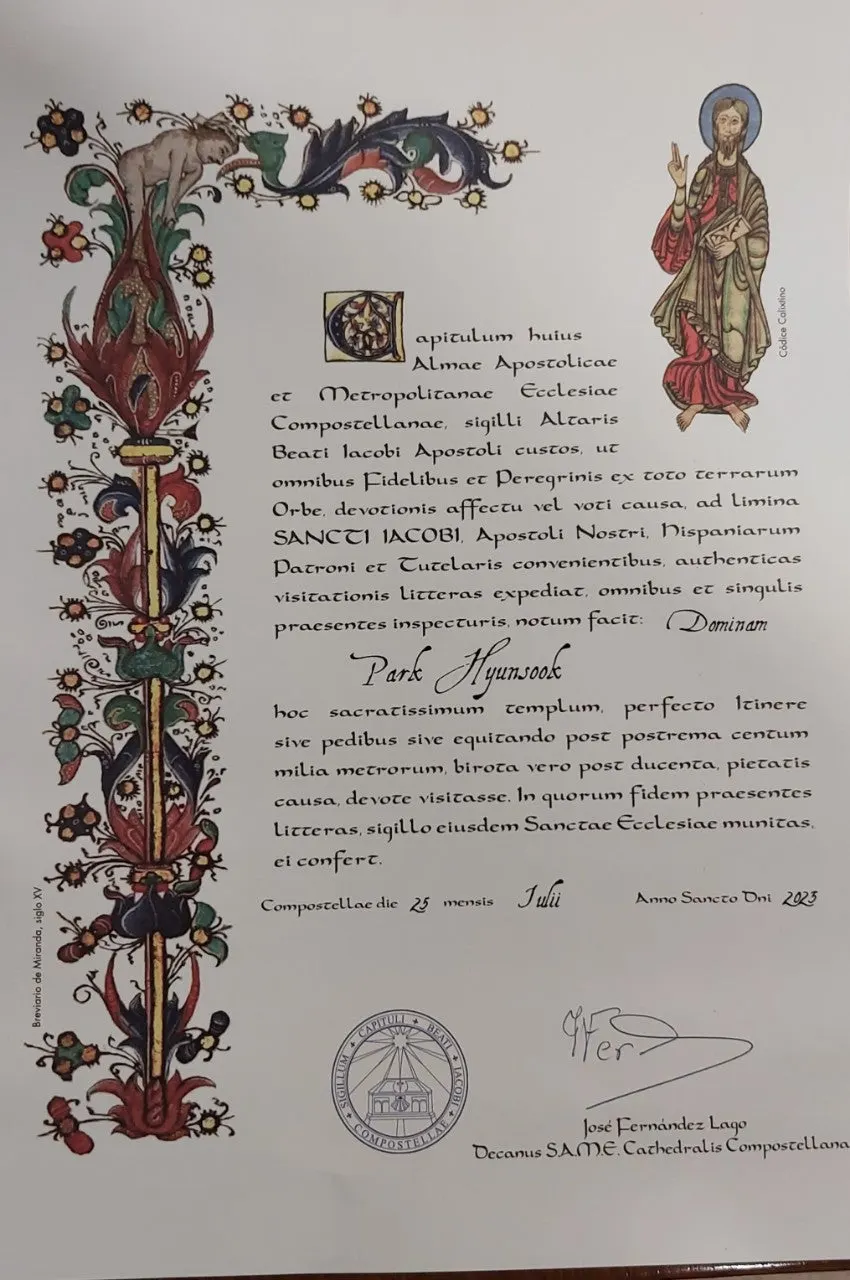 Capitulum huius
Almae Apostolicae
et Metropolitanae Ecclesiae
Compostellanae, sigilli Altaris
Beati Iacobi Apostoli custos, ut
omnibus Fidelibus et Peregrinis ex toto terrarum
Orbe, devotionis affectu vel voti causa, ad limina
SANCTI IACOBI, Apostoli Nostri, Hispaniarum
Patroni et Tutelaris convenientibus, authenticas
visitationis litteras expediat, omnibus et singulis
praesentes inspecturis, notum facit: Dominam
Park Hyunsook
hoc sacratissimum templum, perfecto Itinere
sive pedibus sive equitando post postrema centum
milia metrorum, birota vero post ducenta, pietatis
causa, devote visitasse. In quorum fidem praesentes
litteras, sigillo eiusdem Sanctae Ecclesiae munitas,
ei confert.
Compostellae die 25 mensis Iulii Anno Sancto Dni 2023
SIGILLUM + CAPITULI + BEATI + IACOBI + COMPOSTELLAE +
José Fernández Lago
Decanus S.A.M.E. Cathedralis Compostellana
Códice Calixtino
Breviario de Miranda, siglo XV